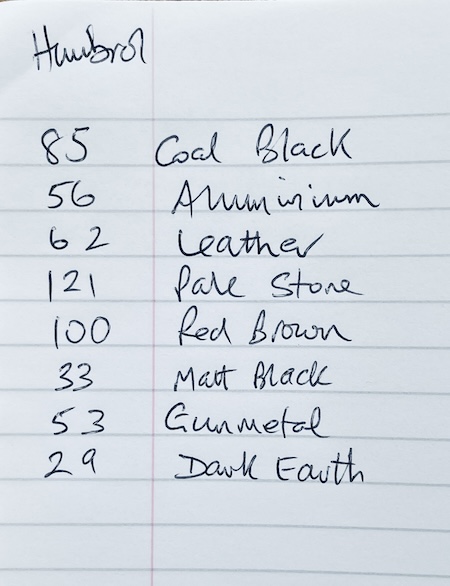 Humbrol
85 Coal Black
56 Aluminium
62 Leather
121 Pale Stone
100 Red Brown
33 Matt Black
53 Gunmetal
29 Dark Earth